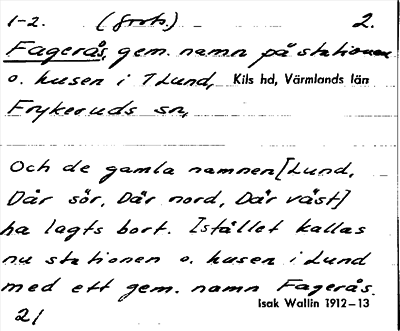 1-2. (forts.) 2.
Fagerås, gem. namn på stationen
o. husen i 7 Lund, Kils hd, Värmlands län
Frykeruds sn,
Och de gamla namnen [Lund,
Där sör, Där nord, Där väst]
ha lagts bort. Istället kallas
nu stationen o. husen i Lund
med ett gem. namn Fagerås.
Isak Wallin 1912-13
21